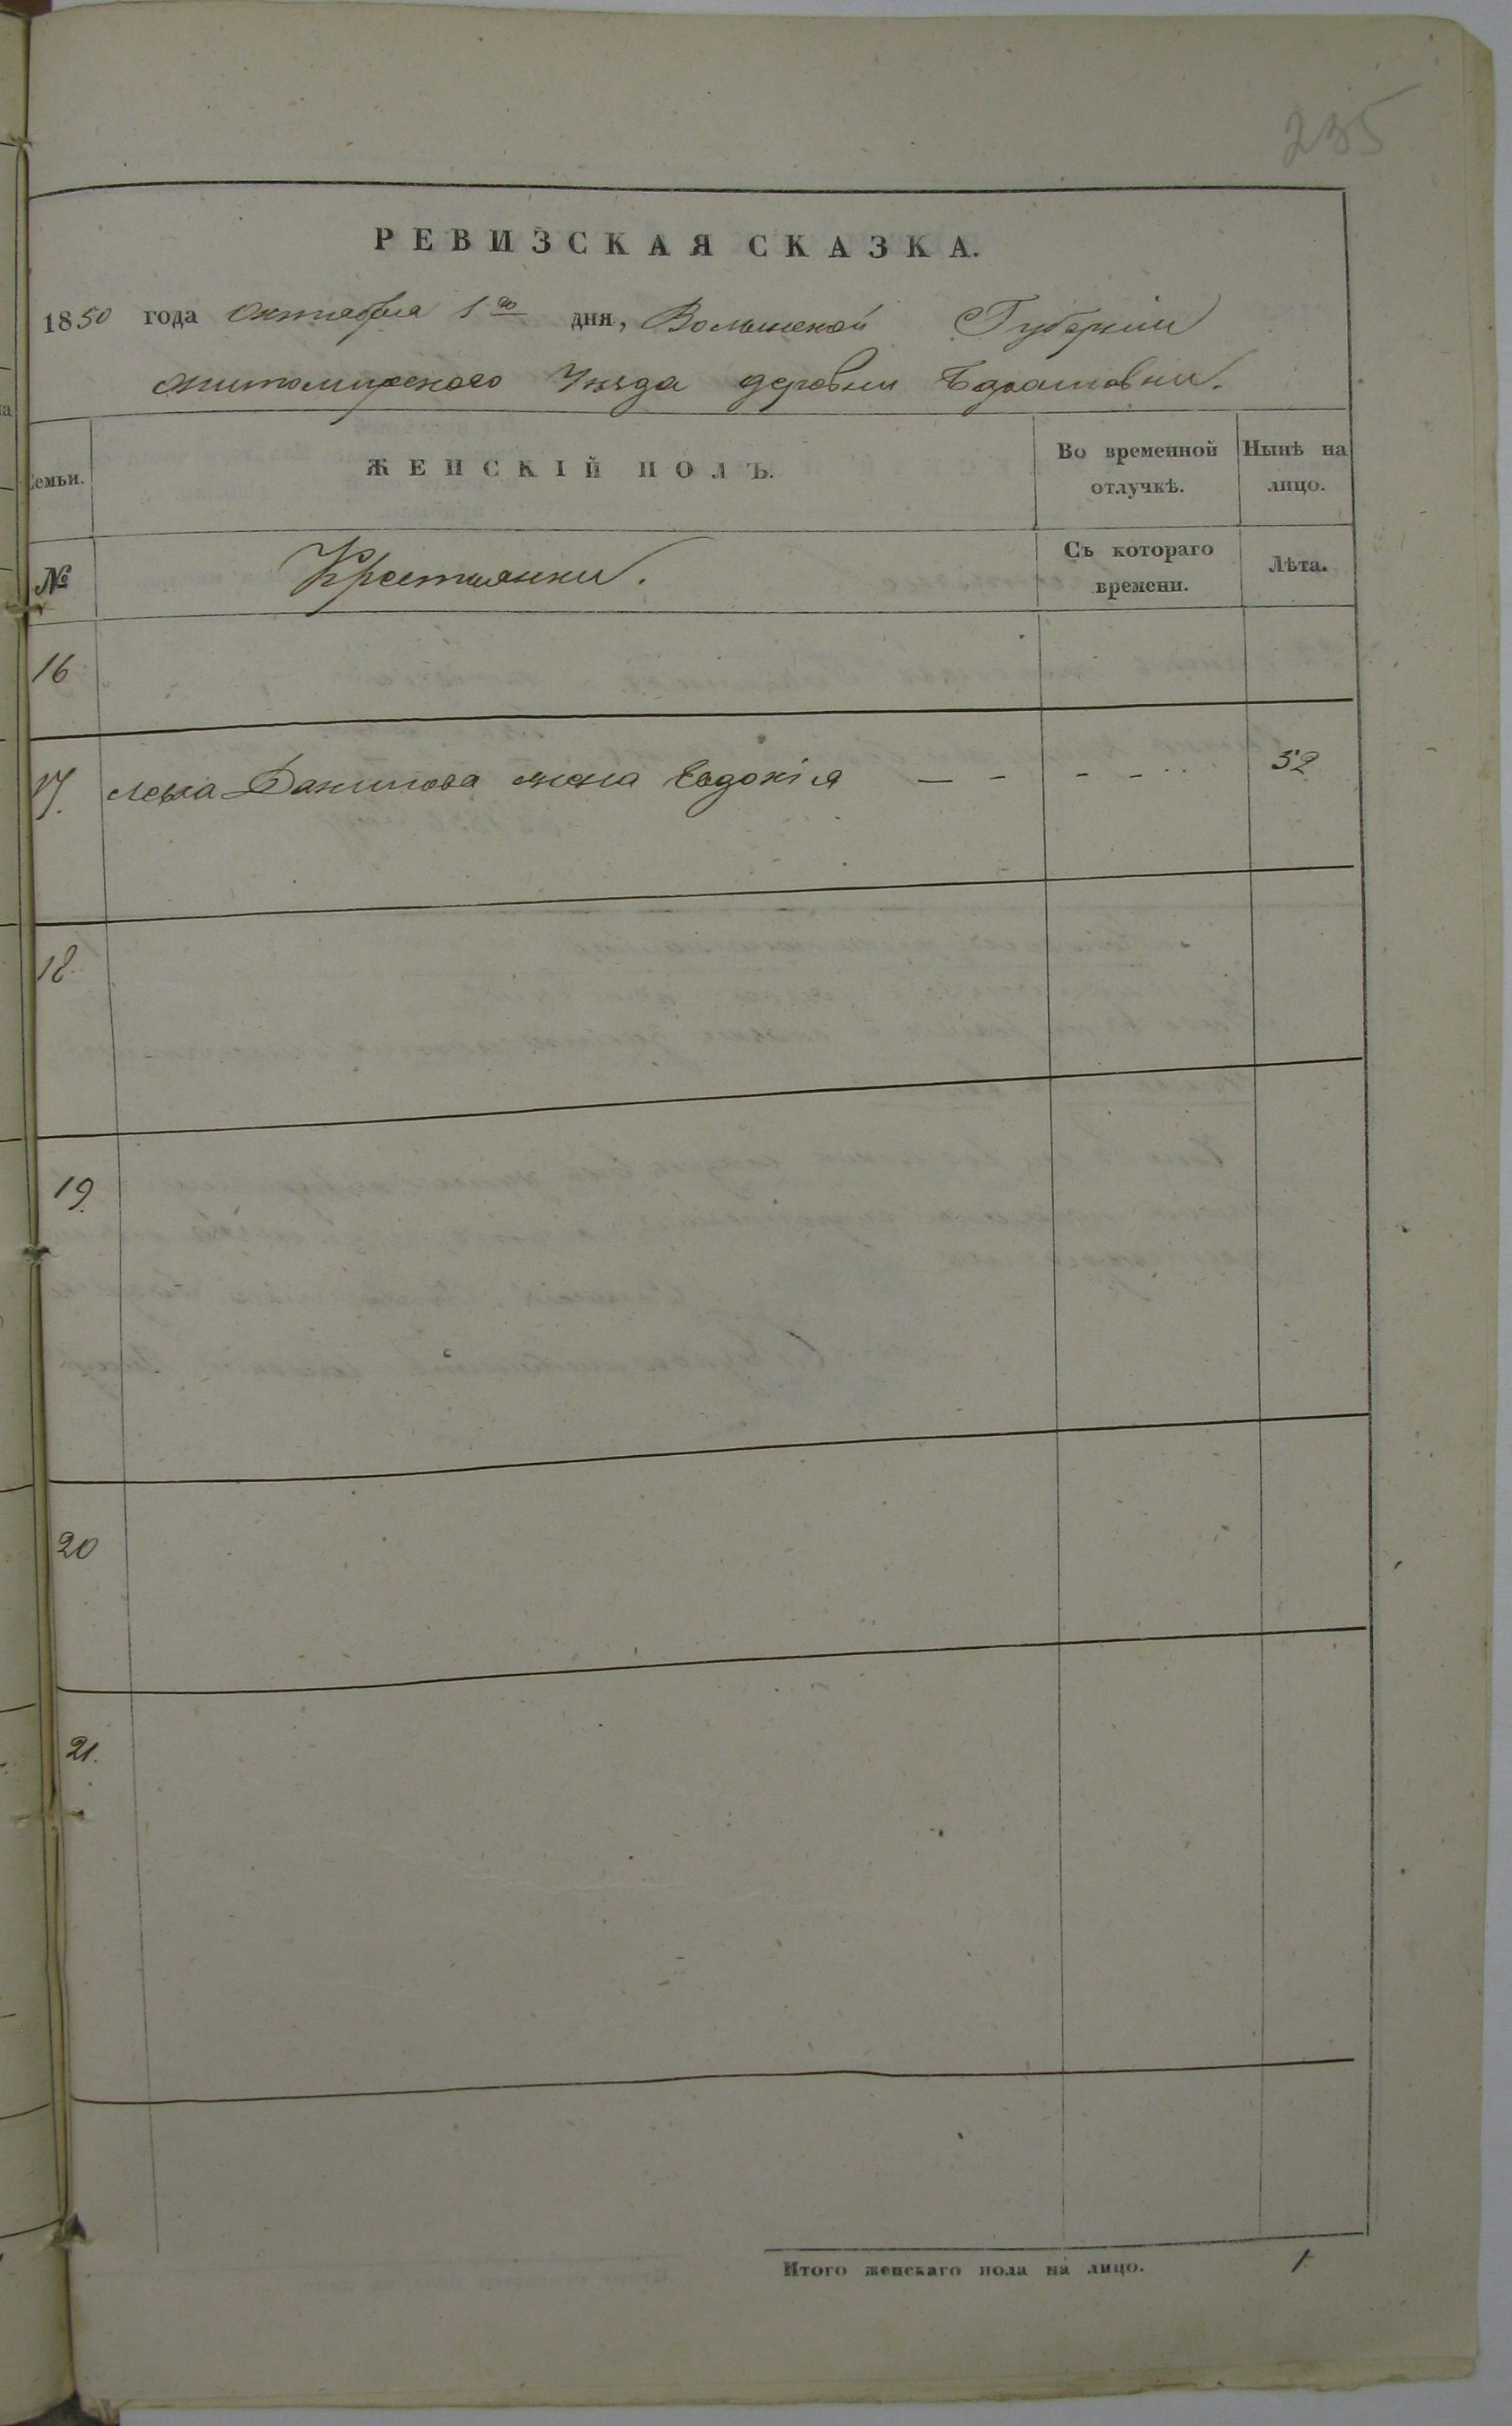 235
РЕВИЗСКАЯ СКАЗКА.
1850 года Октября 1го дня, Волынской Губернии
Житомирского Уезда деревни
Семьи. ЖЕНСКІЙ ПОЛЪ. Во временной отлучкѣ. Нынѣ на лицо.
№ Крестьянки. Съ котораго времени. Лѣта.
16
17. Данилова жена Евдокія — - - - 52
18.
19.
20
21.
Итого женскаго пола на лицо. 1